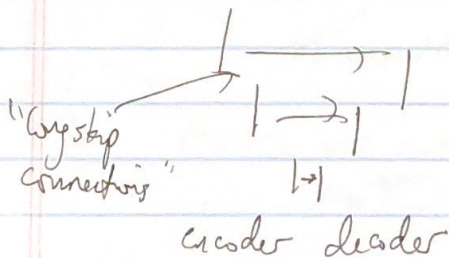 "long skip
connections"
encoder decoder